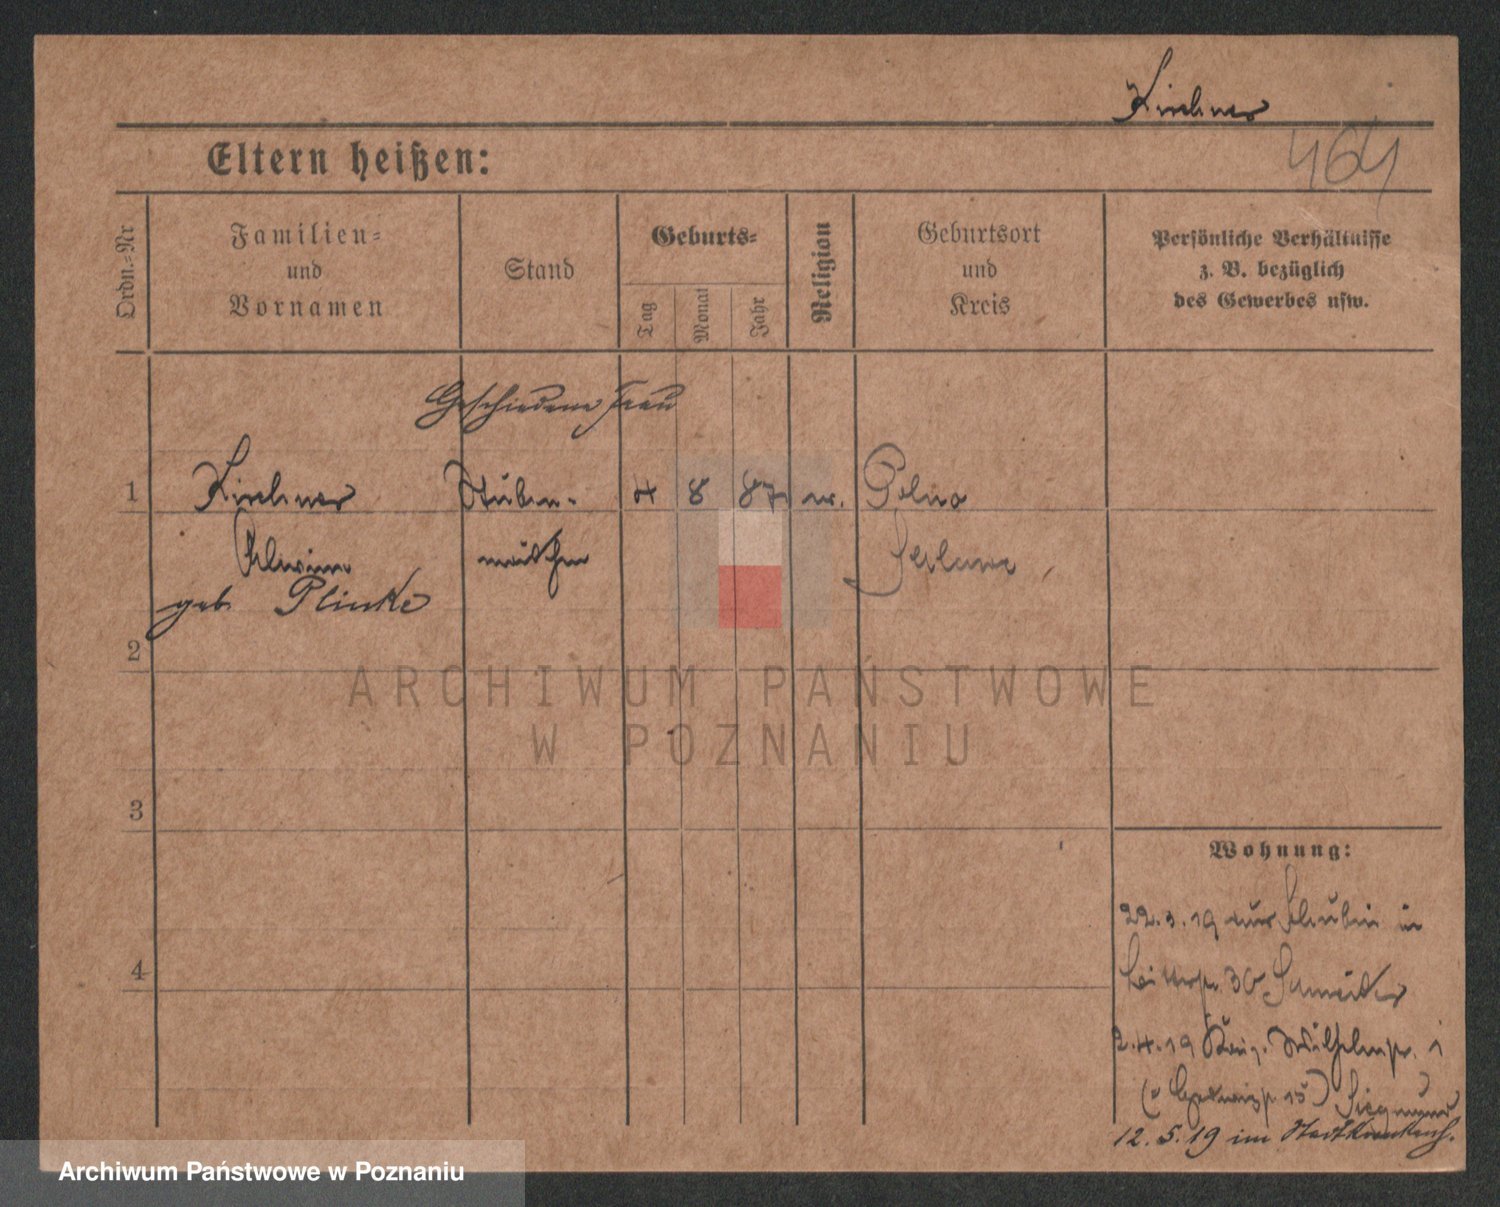 Kirchner
464
Eltern heißen:
Ordn.-Nr
Familien-
und
Vornamen
Stand
Geburts-
Tag
Monat
Jahr
Religion
Geburtsort
und
Kreis
Persönliche Verhältnisse
z. B. bezüglich
des Gewerbes usw.
Geschiedene Frau
1 Kirchner Stuben- 4 8 87
geb. Plinke
2
3
4
ARCHIWUM PAŃSTWOWE
W POZNANIU
Wohnung:
22.3.19 aus Schubin in
30
2.4.19 Wilhelmstr. 1
15) Siegmund
12.5.19 im Stadtkrankenh.
Archiwum Państwowe w Poznaniu